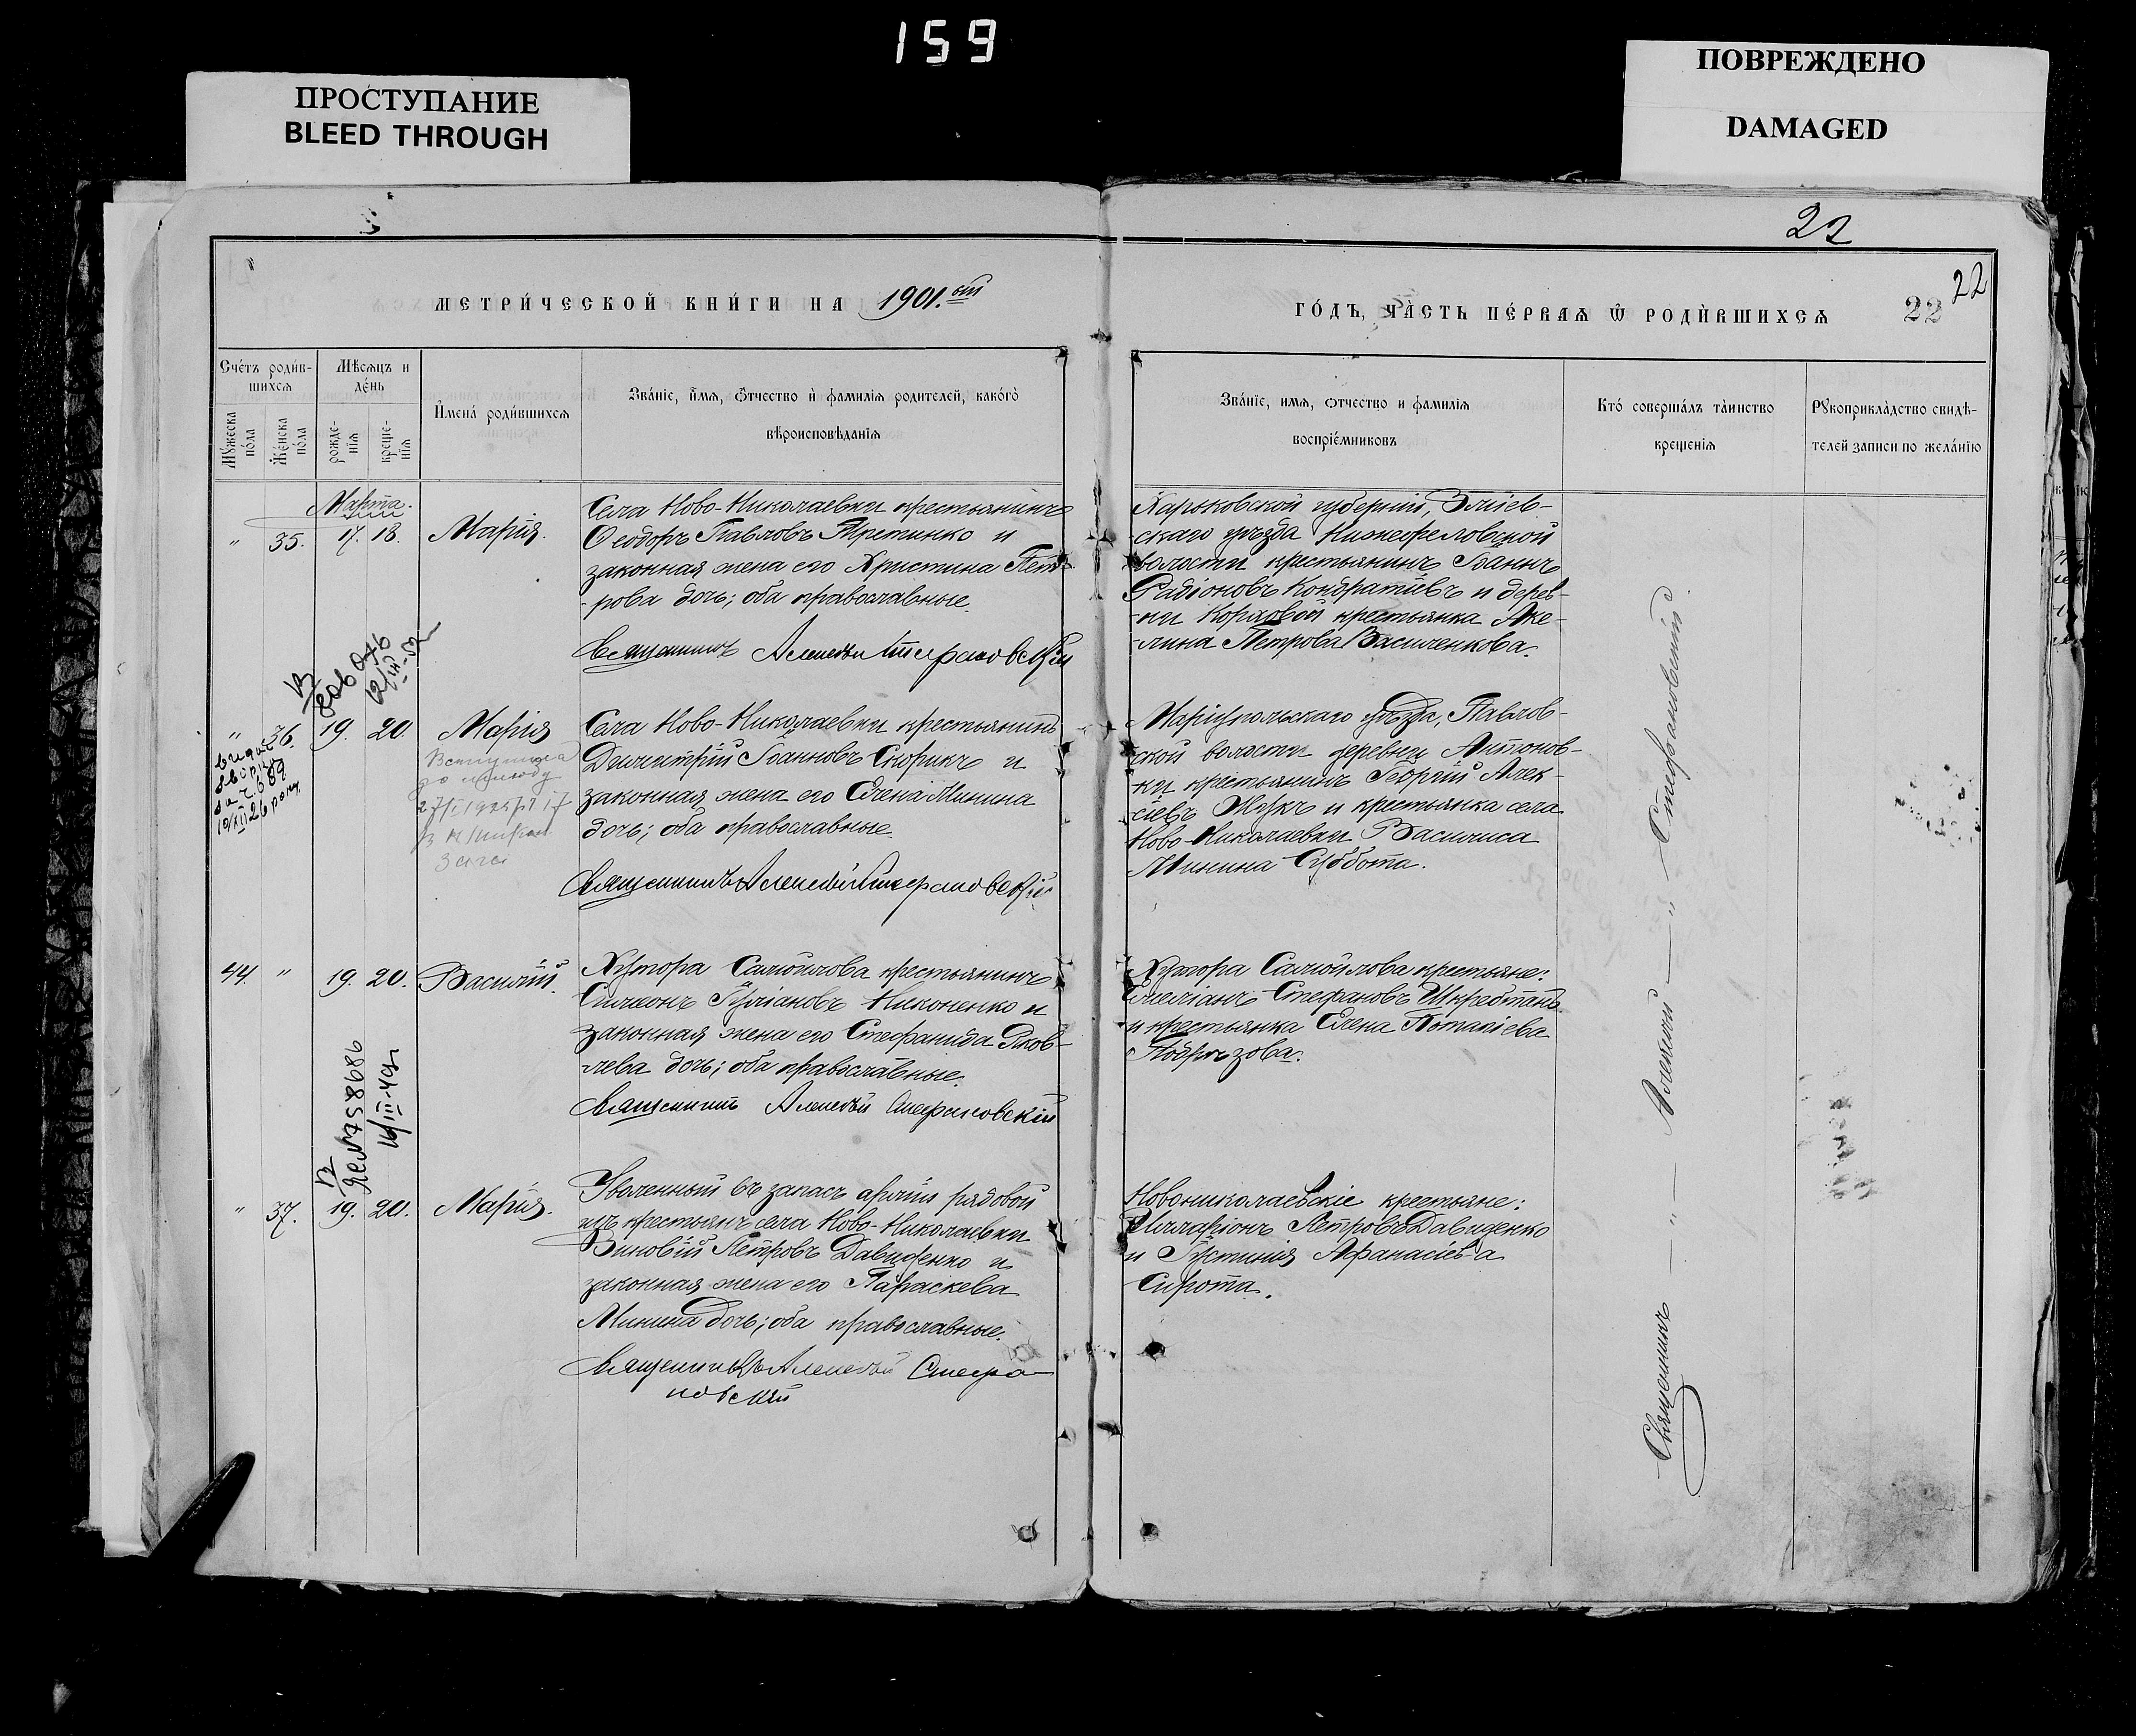 159
ПРОСТУПАНИЕ
BLEED THROUGH
ПОВРЕЖДЕНО
DAMAGED
22
22
МЕТРИ́ЧЕСКОЙ КНИ́ГИ НА 1901.ый
ГО́ДЪ, ЧА́СТЬ ПЕ́РВАѦ Ѿ РОДИ́ВШИХСѦ 22
Сче́тъ роди́в-
шихсѧ
Мꙋжеска по́ла
Же́нска по́ла
Мѣсѧцъ и
де́нь
рожде-
нїѧ
креще-
нїѧ
И҆мена́ роди́вшихсѧ
Зва́нїе, и҆́мѧ, ѻ҆́тчество и҆ фамилїѧ родителей, како́го
вѣроисповѣданїѧ
Зва́нїе, имѧ, ѻтчество и фамилїѧ
воспрїе́мниковъ
Кто́ соверша́лъ та́инство
крещенїѧ
Рꙋкоприкла́дство свидѣ-
телей записи по жела́нїю
Марта.
" 35. 17. 18. Марія.
Села Ново-Николаевки крестьянинъ
Ѳеодоръ Павловъ Третинко и
законная жена его Христина Пет-
-рова дочь; оба православные.
Священникъ Алексѣй Стефановскій
Харьковской губерніи, Зміев-
-скаго уѣзда Нижеорловской
волости крестьянинъ Іоаннъ
Радіоновъ Кондратьевъ и дерев-
-ни крестьянка Аке-
-лина Петрова Васильченкова.
" 36. 19. 20. Марія
10/XII 26 року
Села Ново-Николаевки крестьянинъ
Димитрій Іоанновъ Скорикъ и
законная жена его Елена Минина
дочь; оба православные.
Священникъ Алексѣй Стефановскій
Маріупольскаго уѣзда, Павлов-
-ской волости деревни Антонов-
-ки крестьянинъ Георгій Алек-
-сіевъ Жукъ и крестьянка села
Ново-Николаевки Василиса
Минина Суббота.
44. " 19. 20. Василій.
Хутора Самойлова крестьянинъ
Симеонъ Іуліановъ Никоненко и
законная жена его Стефанида Яков-
лева дочь; оба православные.
Священникъ Алексѣй Стефановскій
Хутора Самойлова крестьяне:
Емеліанъ Стефановъ
и крестьянка Елена Потапіева
Подрѣзова.
758686
16/III-49
" 37. 19. 20. Марія.
Уволенный въ запасъ арміи рядовой
изъ крестьянъ села Ново-Николаевки
Зиновій Петровъ Давиденко и
законная жена его Параскева
Минина дочь; оба православные.
Священникъ Алексѣй Стефа-
новскій
Новониколаевскіе крестьяне:
Илларіонъ Петровъ Давиденко
и Іустинія Афанасіева
Сирота.
Священникъ — " — Алексѣй — " — Стефановскій